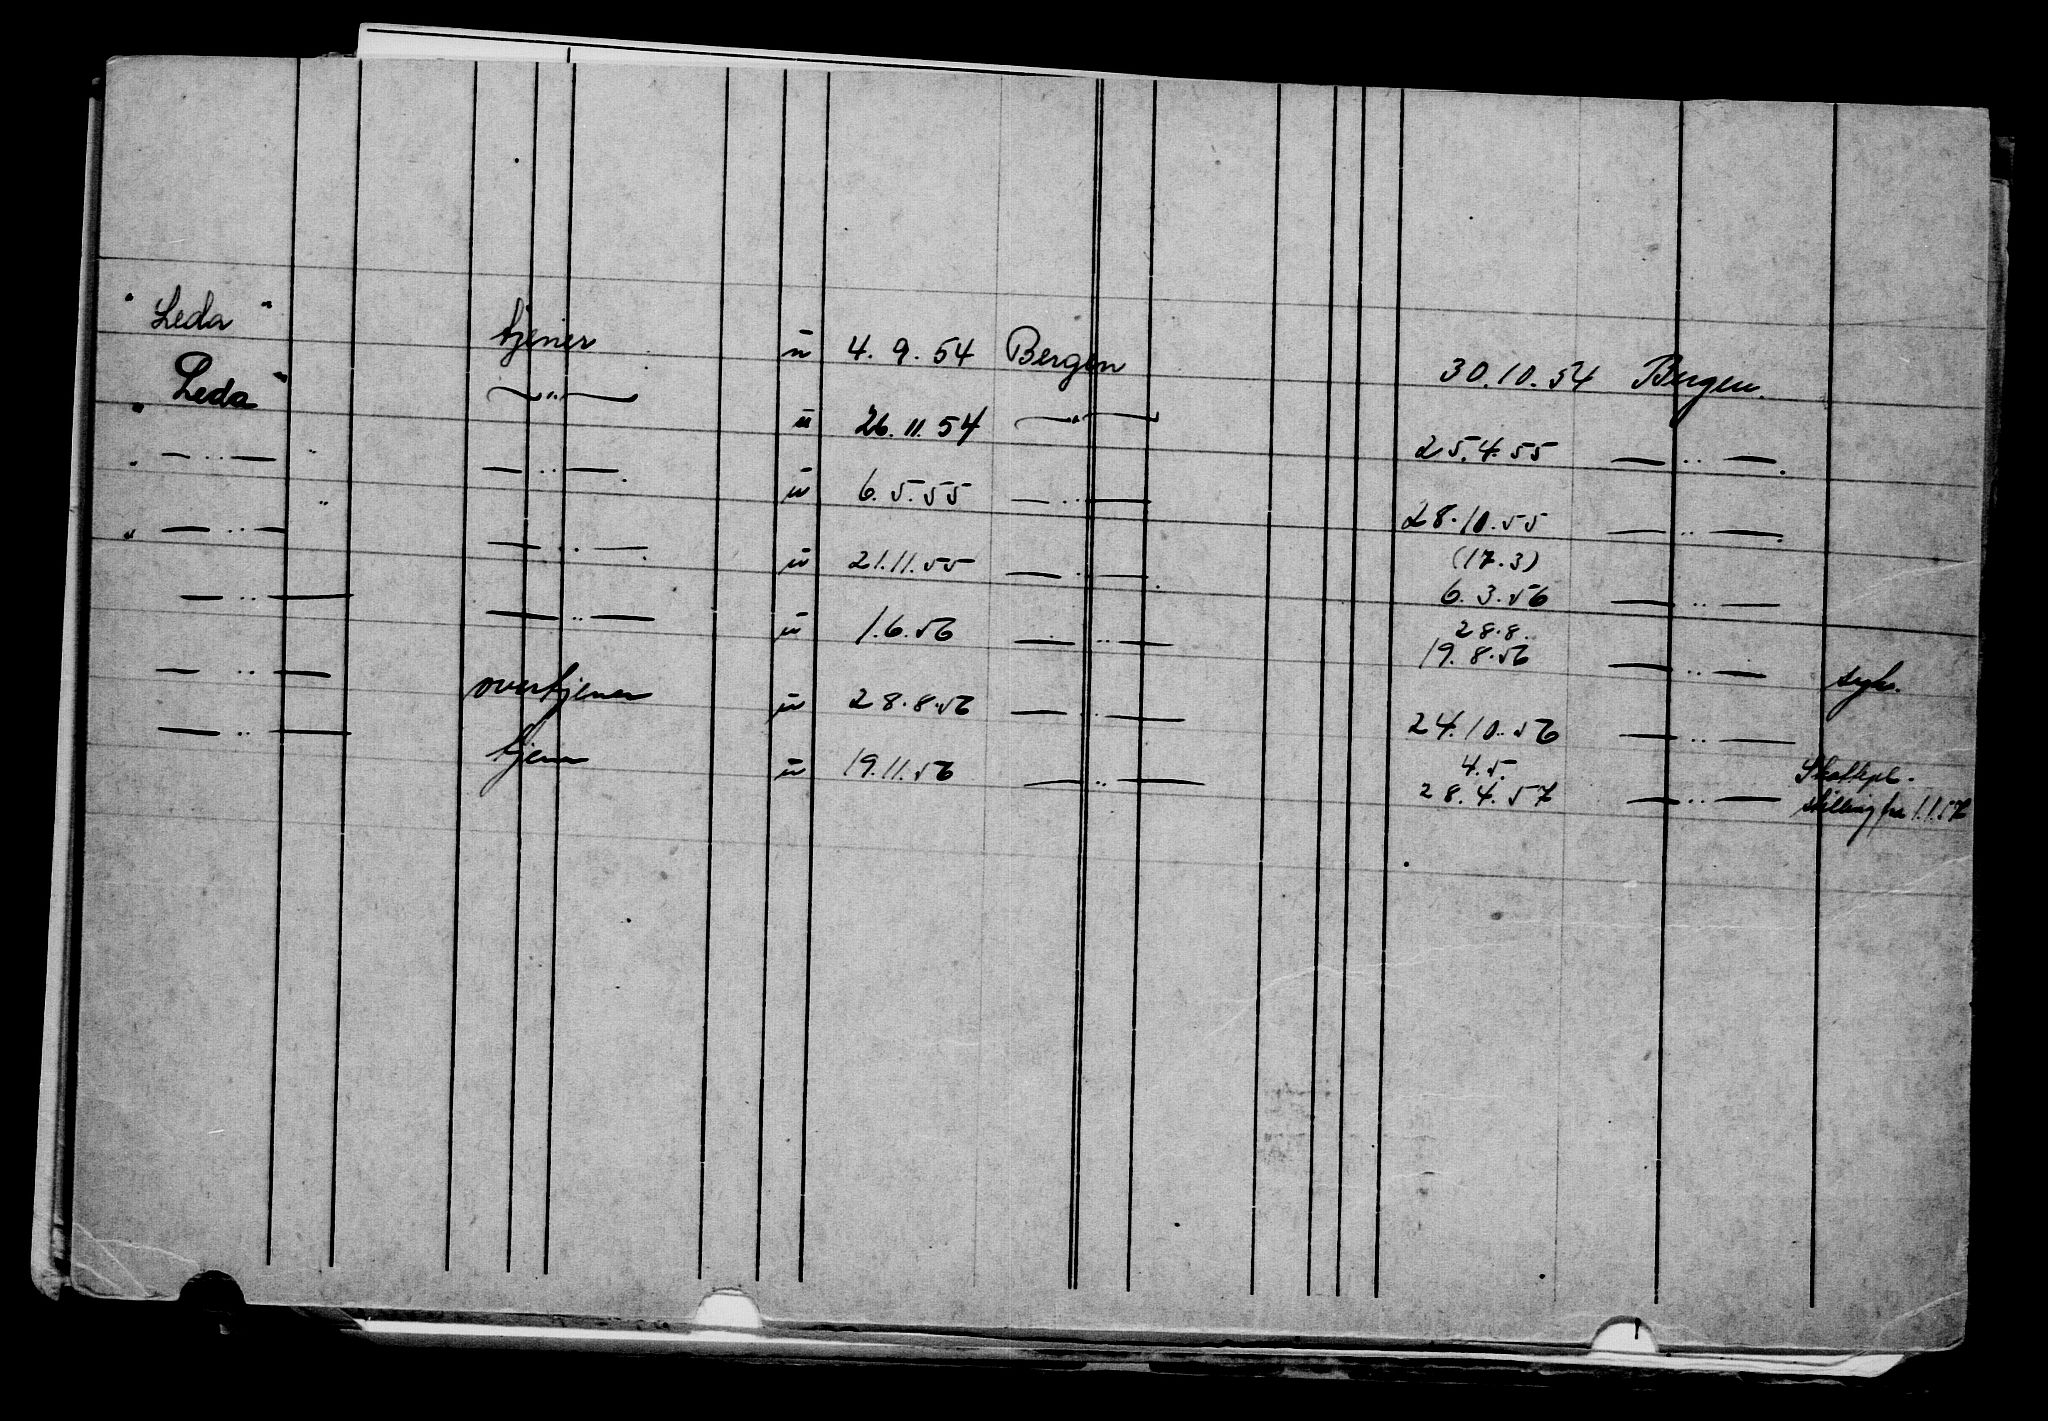 "Leda" tjener u 4.9.54 Bergen 30.10.54 Bergen.
"Leda" —"— u 26.11.54 —"— 25.4.55 —"—
" —"— " —"— u 6.5.55 —"— 28.10.55 —"—
(17.3)
" —"— " —"— u 21.11.55 —"— 6.3.56 —"—
28.8.
—"— —"— u 1.6.56 —"— 19.8.56 —"— syk.
—"— overtjener u 28.8.56 —"— 24.10.56 —"—
4.5. Skattepl.
—"— tjener u 19.11.56 —"— 28.4.57 —"— stilling fra 1.1.57